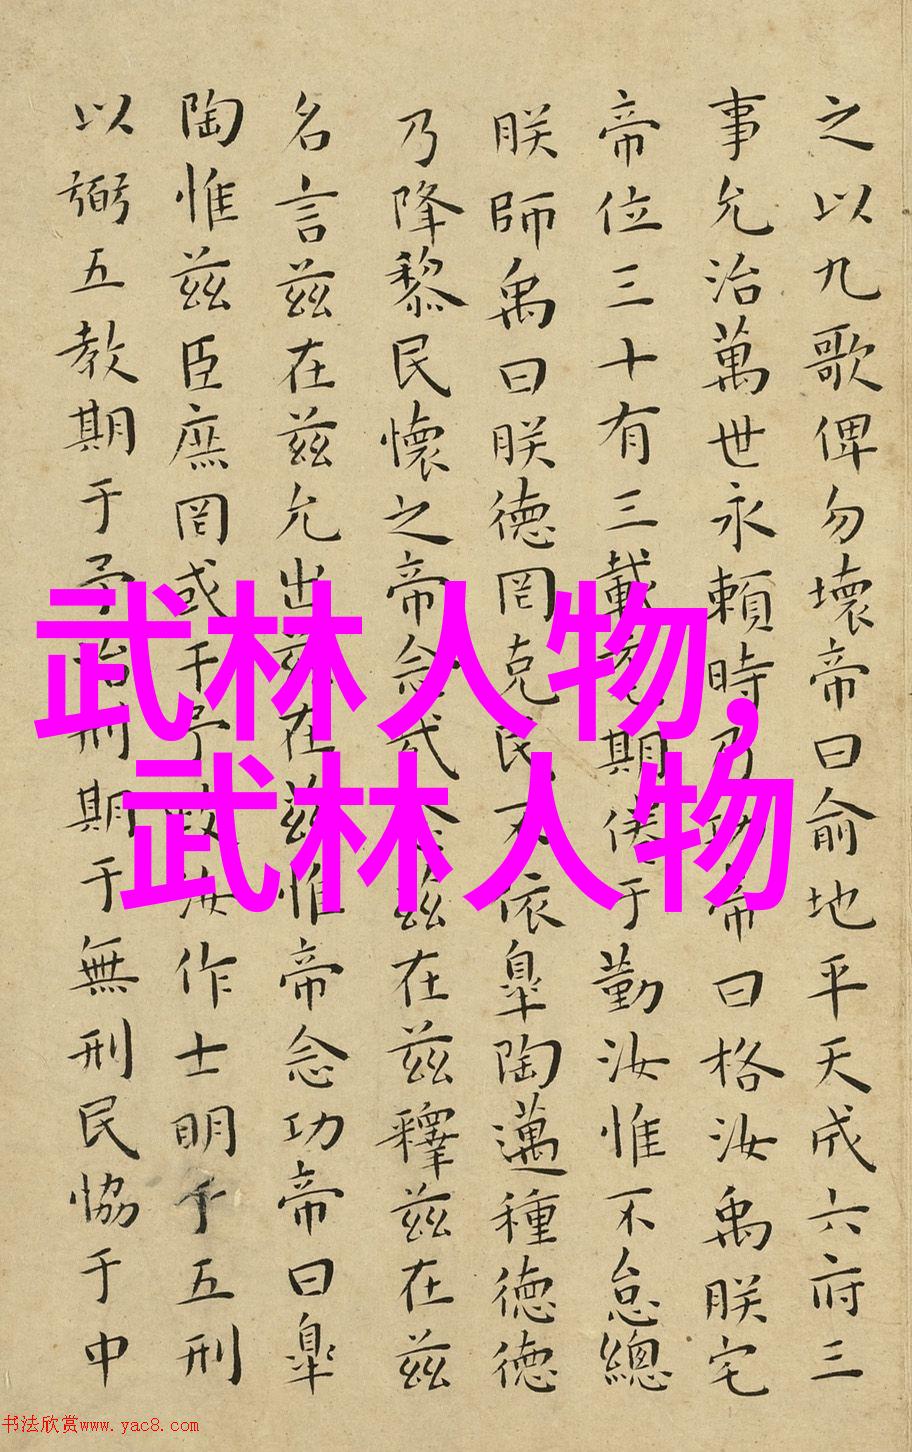 之以九歌俾勿壞帝曰俞地平天成六府三
事允治萬世永賴時乃功帝曰格汝禹朕宅
帝位三十有三載耄期倦于勤汝惟不怠總
朕師禹曰朕德罔克民不依皐陶邁種德德
乃降黎民懷之帝念哉念茲在茲釋茲在茲
名言茲在茲允出茲在茲惟帝念功帝曰皐
陶惟茲臣庶罔或干予政汝作士明于五刑
以弼五教期于予治刑期于無刑民恊于中
武林人物,
武林人物
书法欣赏www.yac8.com